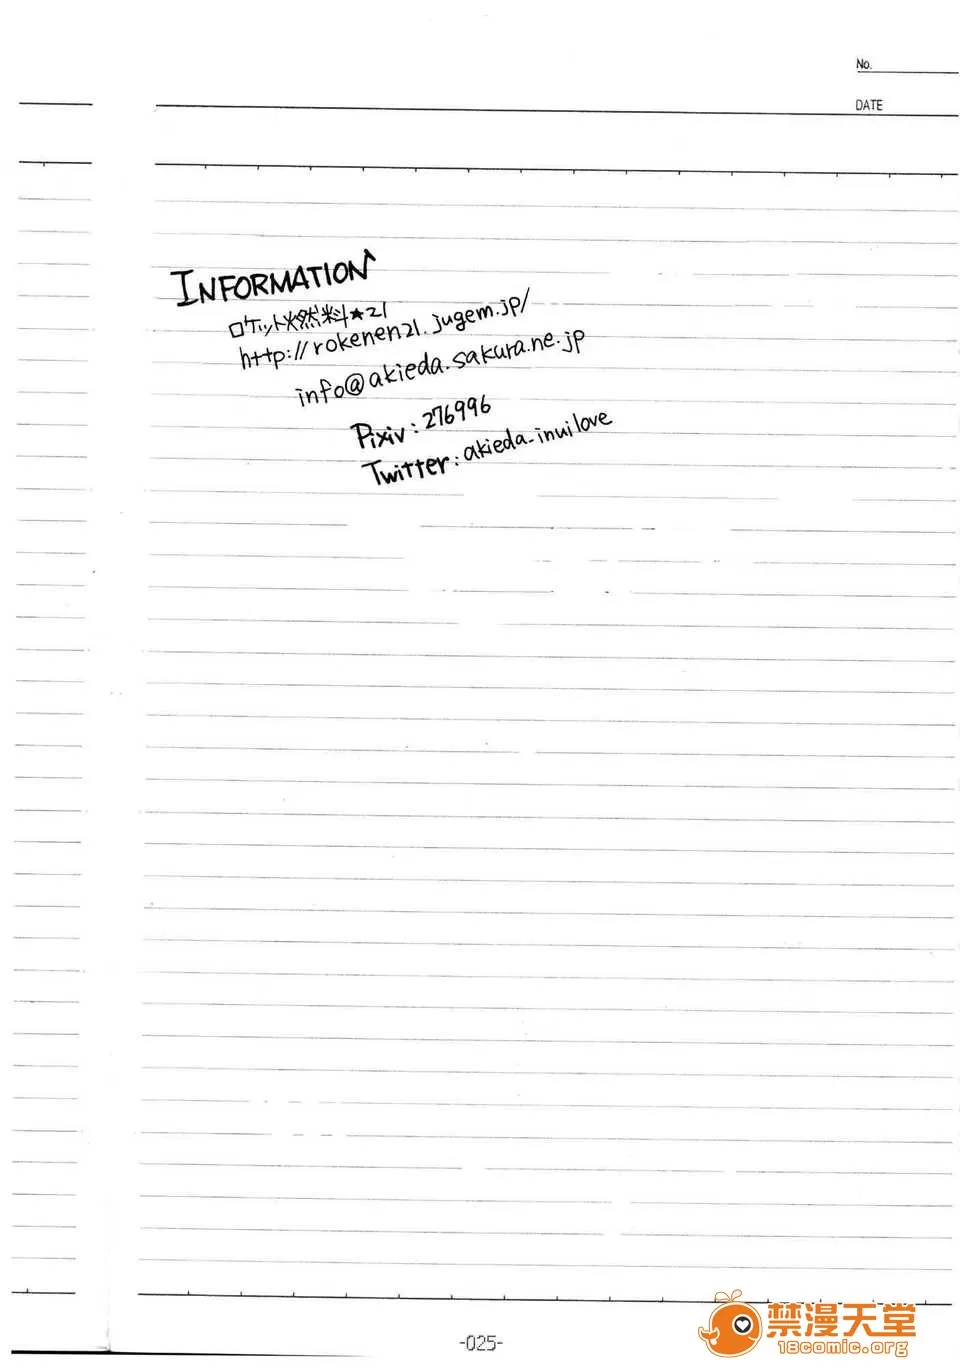 No.
DATE
INFORMATION
ロケット燃料★21
http://rokenen21.jugem.jp/
info@akieda.sakura.ne.jp
Pixiv:276996
Twitter:akieda_inuilove
-025-
禁漫天堂
18comic.org